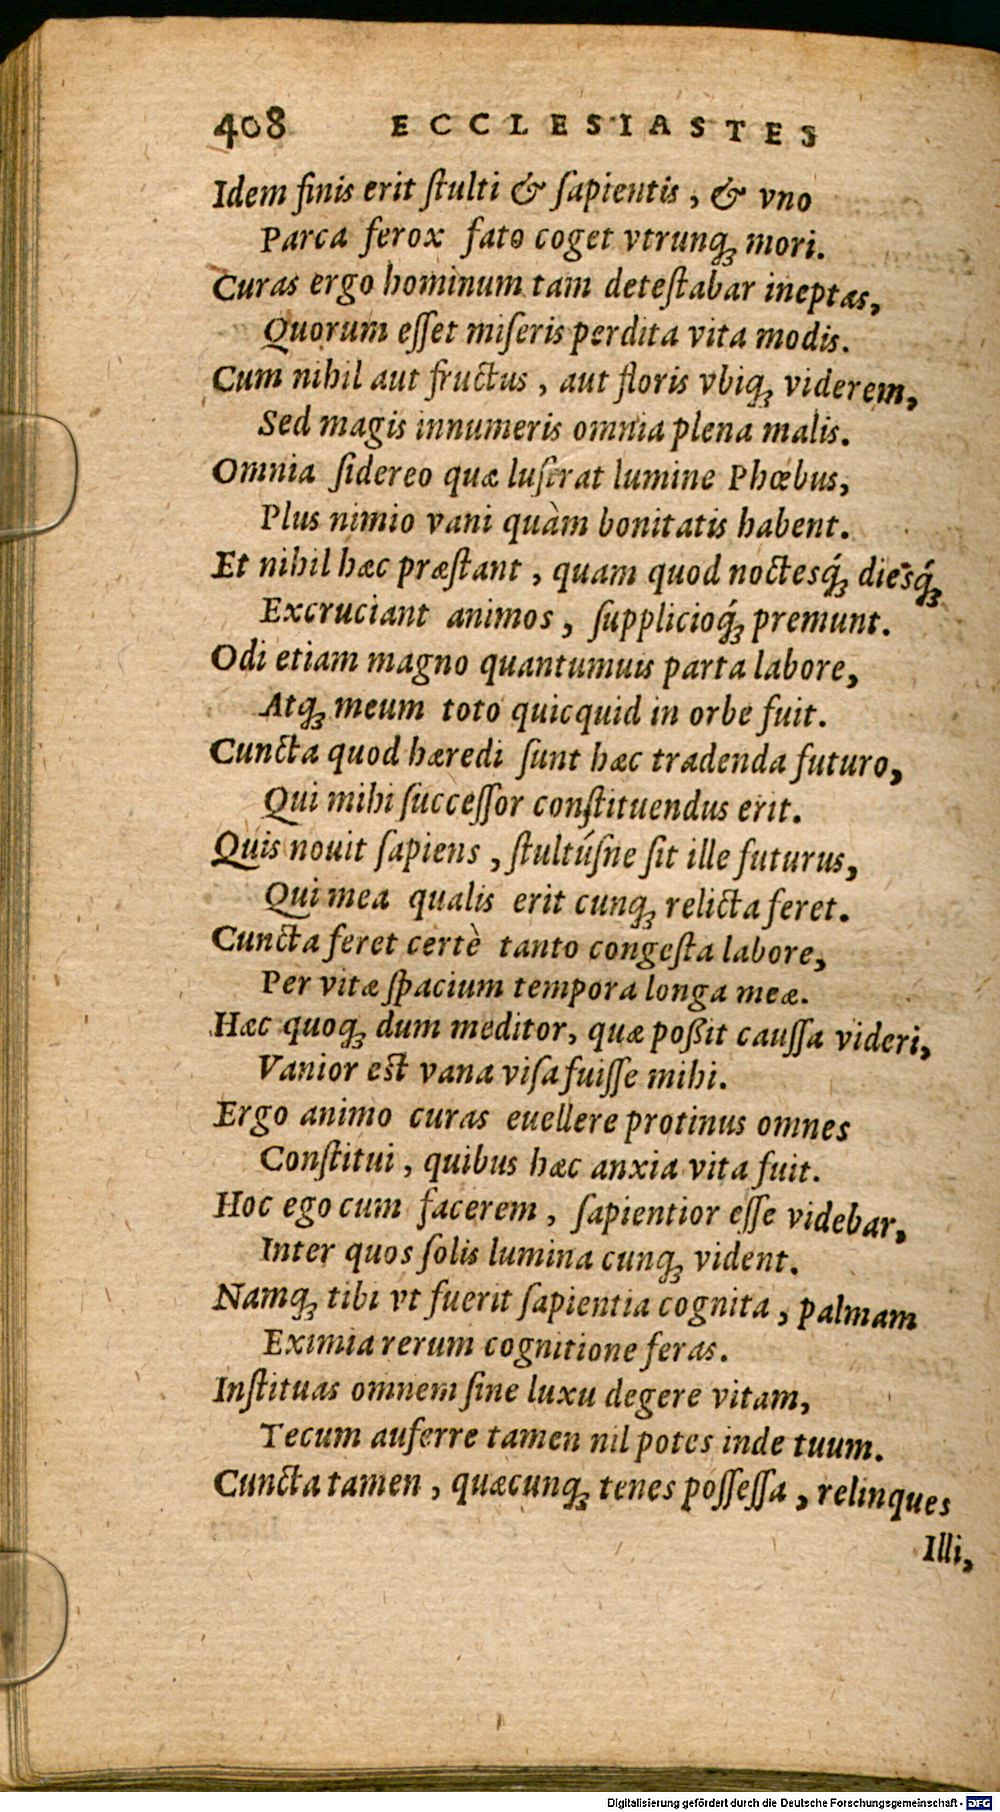 408 ECCLESIASTES
Idem finis erit ſtulti & ſapientis, & vno
Parca ferox fato coget vtrunqꝫ mori.
Curas ergo hominum tam deteſtabar ineptas,
Quorum eſſet miſeris perdita vita modis.
Cum nihil aut fructus, aut floris vbiqꝫ viderem,
Sed magis innumeris omnia plena malis.
Omnia ſidereo quæ luſtrat lumine Phœbus,
Plus nimio vani quàm bonitatis habent.
Et nihil hæc præſtant, quam quod noctesq́ꝫ diesq́ꝫ
Excruciant animos, ſupplicioq́ꝫ premunt.
Odi etiam magno quantumuis parta labore,
Atqꝫ meum toto quicquid in orbe fuit.
Cuncta quod hæredi ſunt hæc tradenda futuro,
Qui mihi ſucceſſor conſtituendus erit.
Quis nouit ſapiens, ſtultúſne ſit ille futurus,
Qui mea qualis erit cunqꝫ relicta feret.
Cuncta feret certè tanto congeſta labore,
Per vitæ ſpacium tempora longa meæ.
Hæc quoqꝫ dum meditor, quæ poßit cauſſa videri,
Vanior eſt vana viſa fuiſſe mihi.
Ergo animo curas euellere protinus omnes
Conſtitui, quibus hæc anxia vita fuit.
Hoc ego cum facerem, ſapientior eſſe videbar,
Inter quos ſolis lumina cunqꝫ vident.
Namqꝫ tibi vt fuerit ſapientia cognita, palmam
Eximia rerum cognitione feras.
Inſtituas omnem ſine luxu degere vitam,
Tecum auferre tamen nil potes inde tuum.
Cuncta tamen, quæcunqꝫ tenes poſſeſſa, relinques
Illi,
Digitalisierung gefördert durch die Deutsche Forschungsgemeinschaft - DFG